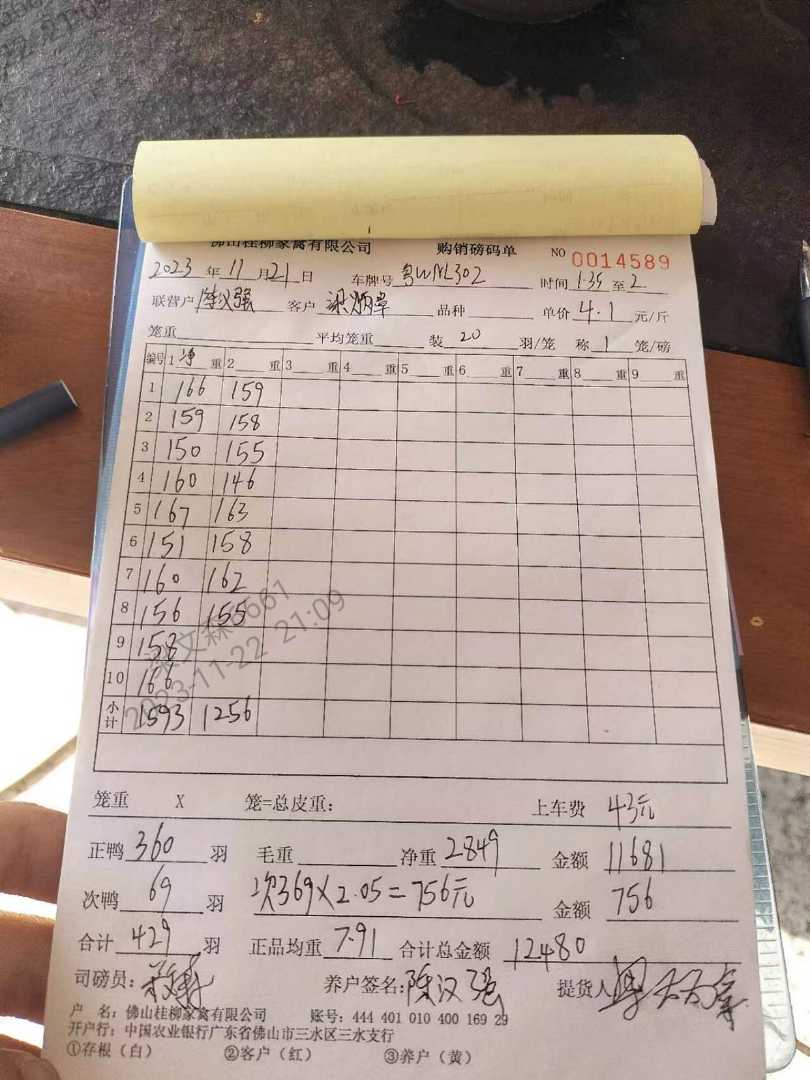 佛山桂柳家禽有限公司 购销磅码单 NO 0014589
2023 年 11 月 21 日 车牌号 粤WNL302 时间 1:35 至 2
联营户 陈汉强 客户 品种 单价 4.1 元/斤
笼重 平均笼重 装 20 羽/笼 称 1 笼/磅
编号 1 净 重 2 重 3 重 4 重 5 重 6 重 7 重 8 重 9 重
1 166 159
2 159 158
3 150 155
4 160 146
5 167 163
6 151 158
7 160 162
8 156 155
9 158
10 166
小计 1593 1256
梁文霖 6661
2023-11-22 21:09
笼重 X 笼=总皮重: 上车费 43元
正鸭 360 羽 毛重 净重 2849 金额 11681
次鸭 69 羽 次369×2.05=756元 金额 756
合计 429 羽 正品均重 7.91 合计总金额 12480
司磅员: 养户签名: 陈汉强 提货人
户 名: 佛山桂柳家禽有限公司 账号: 444 401 010 400 169 29
开户行: 中国农业银行广东省佛山市三水区三水支行
①存根（白） ②客户（红） ③养户（黄）